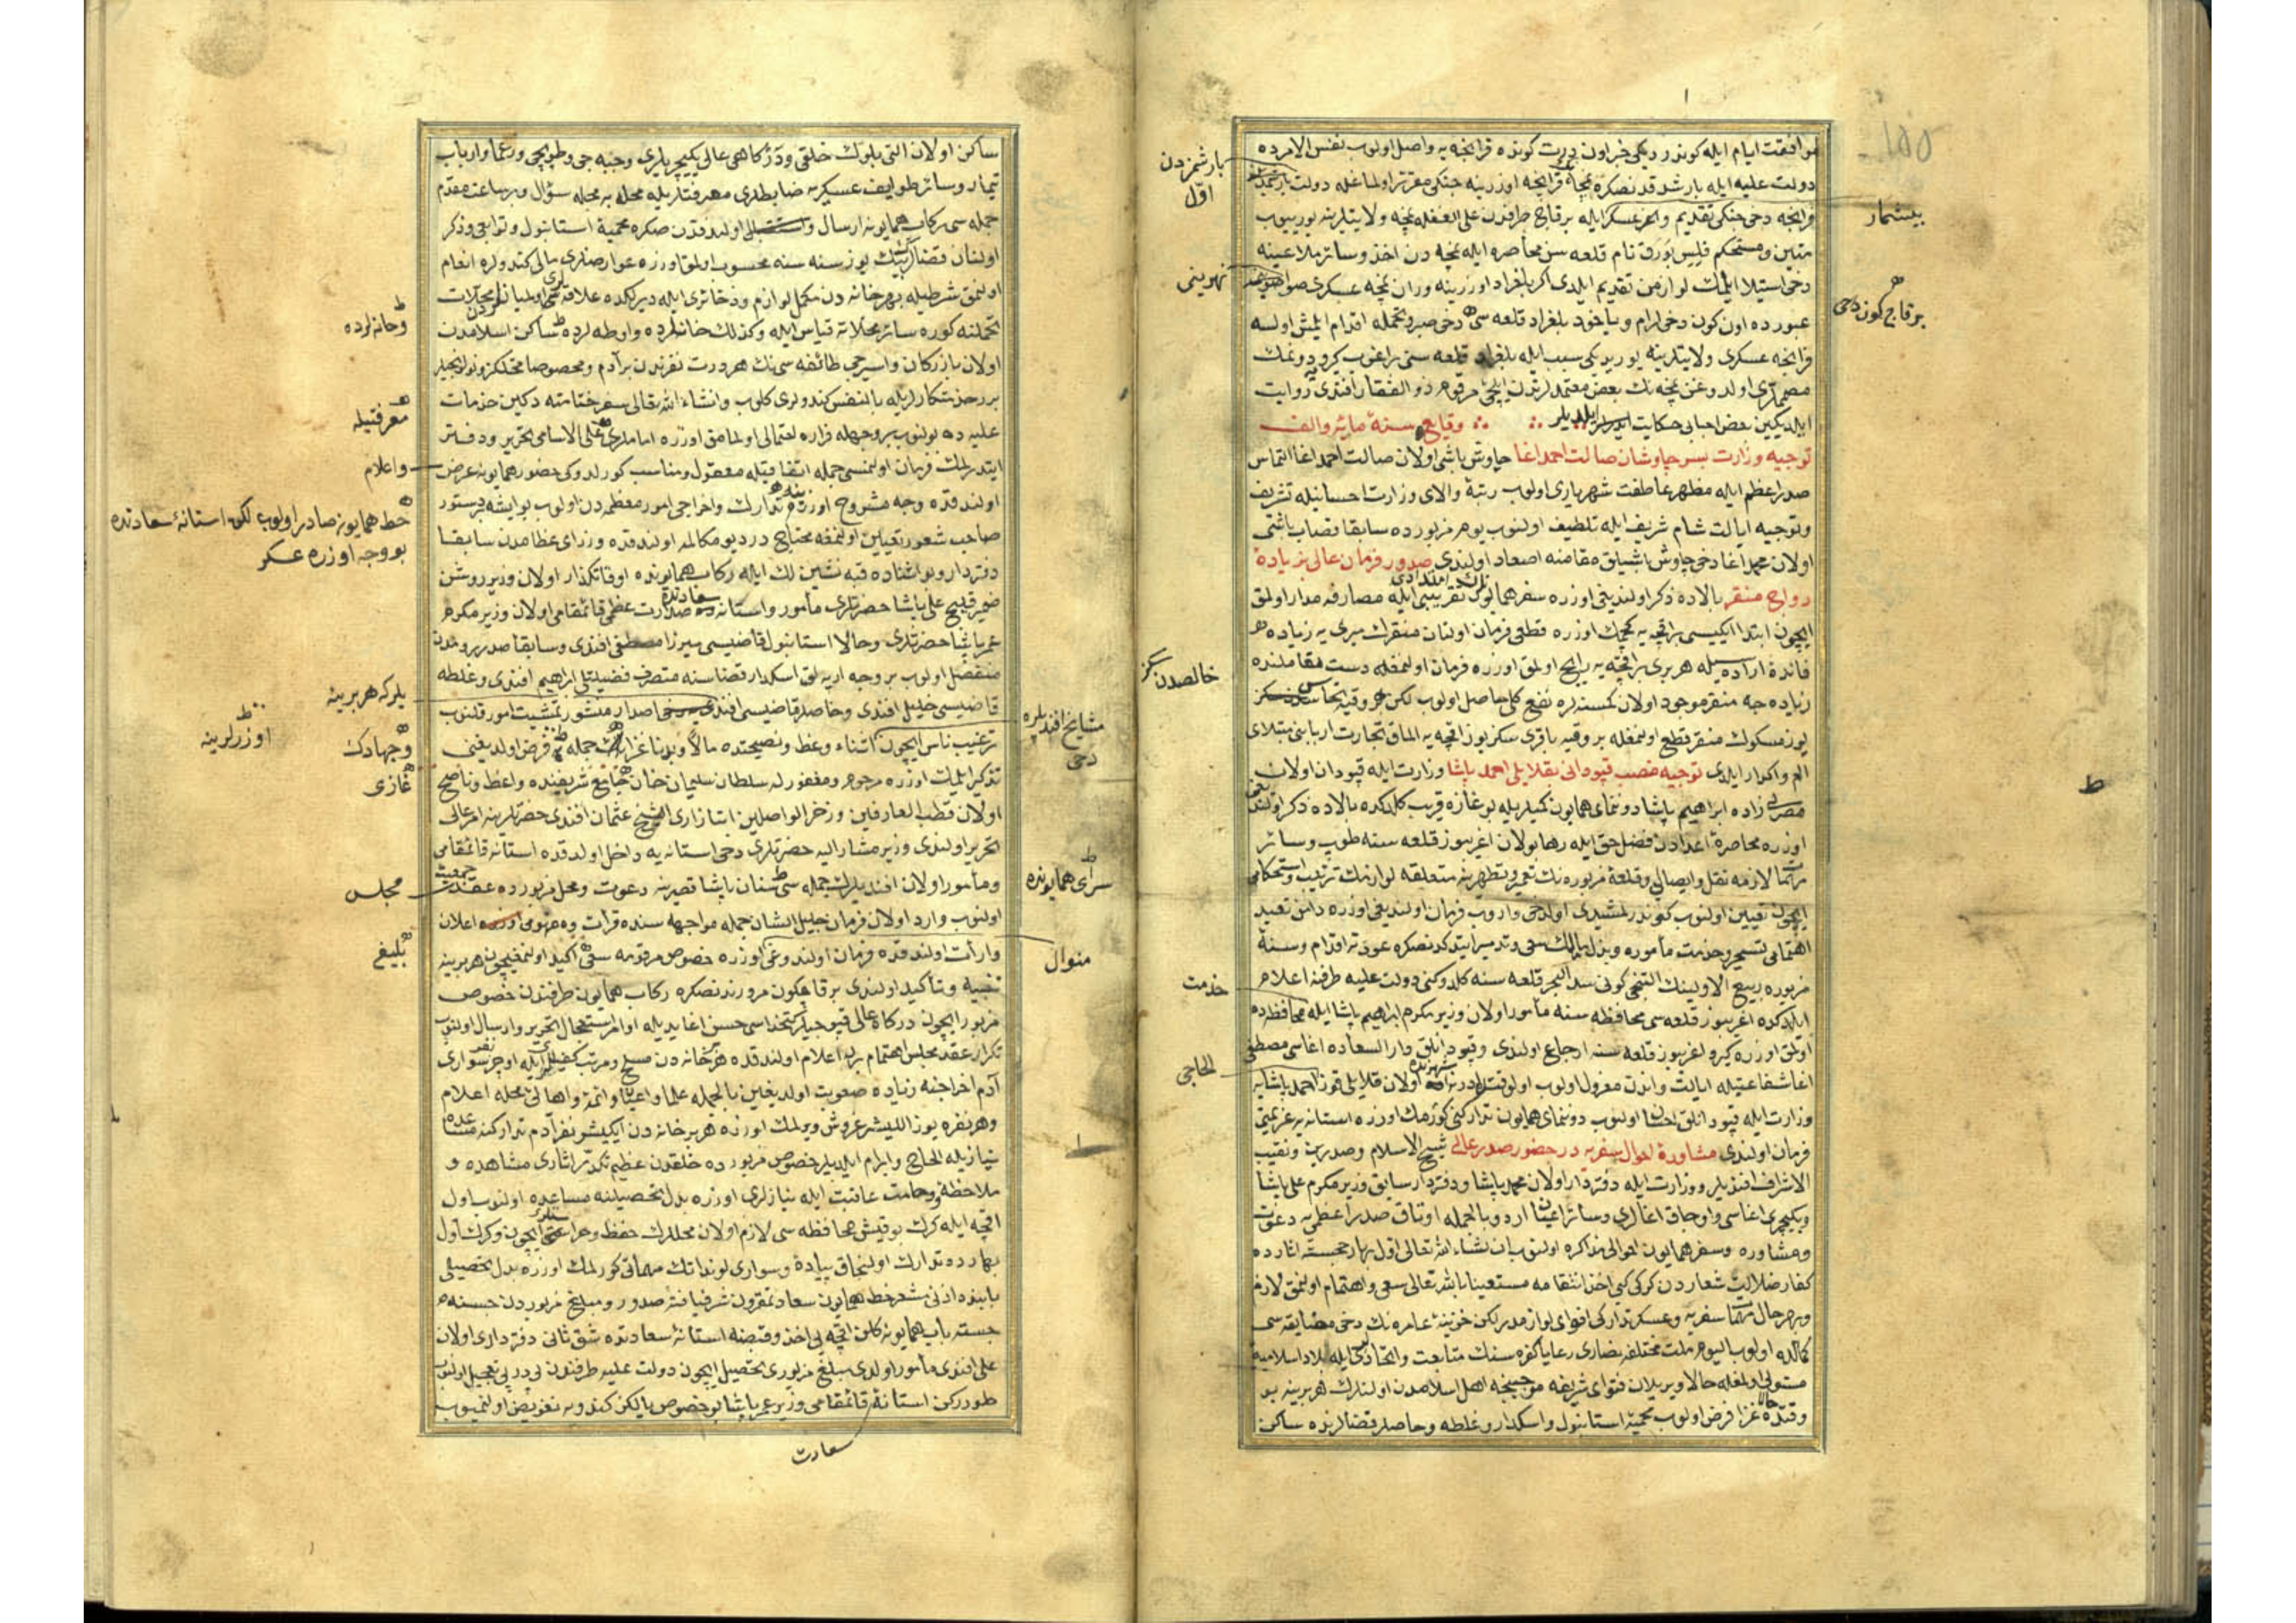 موافقت ایام ایله کوندردیکی خبر اون درت کونده فرانچه یه واصل اولوب نفس الامرده
دولت علیه ایله بارشدقدنصکره نمچه فرانچه اوزرینه جنکی مقرر اولماغله دولت
فرانچه دخی جنکی تقدیم و عسکر ایله بر قاج طرفدن علی الغفله نمچه ولایتلرینه یوریوب
متین و مستحکم فلیس بورق نام قلعه سن محاصره ایله نمچه دن اخذ وسائر ملاعینه
دخی استیلا ایلمك لوازمن تقدیم ایلدی اکر بلغراد اوزرینه وران نمچه عسکری صوا
عبورده اون کون دخی آرام ویاخود بلغراد قلعه سی دخی صبر و تحمله اقدام ایلمش اولسه
فرانچه عسکری ولایتلرینه یوریدیکی سبب ایله بلغراد قلعه سنی براغوب کرو دونمك
مصممدی اولدوغن نمچه نك بعض معتمدلرندن ایلچی مرقوم ذوالفقار افندی روایت
ایلدیکین بعض احبابی حکایت ایلدیلر وقایع سنۀ مائة والف
توجیه وزارت بسر چاوشان صالت احمد اغا چاوش باشی اولان صالت احمد اغا التماس
صدراعظم ایله مظهر عاطفت شهریاری اولوب رتبۀ والای وزارت احسانیله تشریف
وتوجیه ایالت شام شریف ایله تلطیف اولنوب یوم مزبورده سابقا قصاب باشی
اولان محمد اغا دخی چاوش باشیلق مقامنه اصعاد اولندی صدور فرمان عالی بزیادۀ
رواج منقر بالاده ذکر اولندیغی اوزره سفر همایونك امتدادی تقریبی ایله مصارفه مدار اولمق
ایچون ابتدا ایکیسی بر اقچه یه کچمك اوزره قطعی فرمان اولنان منقرك میری یه زیاده
فائدۀ اراده سیله هر بری بر اقچه یه رایج اولمق اوزره فرمان اولنمغله دست مقاملنده
زیاده جه منقر موجود اولان کمسنه لره نفع کلی حاصل اولوب لکن هر وقیه نحاس
یوز مسکوك منقر قطع اولنمغله بر وقیه باقری سکز یوز اقچه یه الماق تجارت اربابنی مبتلای
الم واکدار ایلدی توجیه منصب قپودانی بقلایلی احمد پاشا وزارت ایله قپودان اولان
مصرلی زاده ابراهیم پاشا دونمای همایون کمیلریله بوغازه قریب کلدکده بالاده ذکر اولندیغی
اوزره محاصرۀ اعدادن فضل حق ایله رها بولان اغریبوز قلعه سنه طوپ وسائر
مهمات لازمه نقل وایصالی وقلعۀ مزبوره نك تعمیر وتطهیرینه متعلقه لوازمك ترتیب واستحکامی
ایچون تعیین اولنوب کوندرلمشیدی اولدخی واروب فرمان اولندیغی اوزره دامن تعبید
اهتمامی تشمیر وخدمت مأموره وبذل سعی وتدمیر ایتدکدنصکره عون ته اقدام وسنۀ
مزبوره ربیع الاولینك التنجی کونی سدالبحر قلعه سنه کلدوکنی دولت علیه طرفنه اعلام
ایلدکده اغریبوز قلعه سی محافظه سنه مأمور اولان وزیر مکرم ابراهیم پاشا ایله محافظه ده
اولمق اوزره کیرو اغریبوز قلعه سنه ارجاع اولندی وقپودانلق دارالسعاده اغاسی مصطفی
اغا شفاعتیله ایالت واندن معزول اولوب اول وقتلر ادرنه شهرنده اولان قلایلی قوز احمد پاشایه
وزارت ایله قپودانلق احسان اولنوب دونمای همایون تدارکنی کورمك اوزره استانه یه عزیمتی
فرمان اولندی مشاورۀ احوال سفریه در حضور صدر عالی شیخ الاسلام وصدرین ونقیب
الاشراف افندیلر ووزارت ایله دفتردار اولان محمد پاشا ودفتردار سابق وزیر مکرم علی پاشا
ویکیچری اغاسی واوجاق اغالری وسائر اعیان اردو بالجمله اوتاق صدراعظمی یه دعوت
ومشاوره وسفر همایون احوالی مذاکره اولنوب ان شاء الله تعالی اول بهار خجسته اثارده
کفار ضلالت شعاردن کرکی کبی اخذ انتقامه مستعینا بالله تعالی سعی واهتمام اولنمق لازم
وبهر حال مهمات سفریه وعسکر تدارکی اقوای لوازمدر لکن خزینۀ عامره نك دخی مضایقه سی
کمالده اولوب الیوم ملت مختلفه نصاری رعایا کفره سنك متابعت واتحادی ایله بلاد اسلامیه
مستولی اولمغله حالا ویریلان فتوای شریفه موجبنجه اهل اسلامدن اولنلرك هر برینه بو
وقتده غزا فرض اولوب محمیۀ استانبول واسکدار وغلطه وخاصلر قضالرنده ساکن
بارشمزدن
اول
نهرینی
خالصدن سکز
خدمت
الحاجی
بیشمار
بر قاج کون دخی
ط
ساکن اولان التی بلوك خلقی ودرکاه عالی یکیچریلری وجبه جی وطوپجی وزعما وارباب
تیمار وسائر طوایف عسکریه ضابطلری معرفتلریله محله به محله سؤال وبر ساعت مقدم
جمله سی رکاب همایونه ارسال اولندقدن صکره محمیۀ استانبول وتوابعی وذکر
اولنان قضالرك بیك یوز سنه سنه محسوب اولمق اوزره عوارضلری مالی کندولره انعام
اولنمق شرطیله بهر خانه دن مکمل لوازم وذخائری ایله
تحملنه کوره سائر محلاته قیاس ایله وکذلك خانلرده واوطه لرده ساکن اسلامدن
اولان بازرکان واسیرجی طائفه سی نك هر درت نفرندن بر آدم ومخصوصا
بر خدمتکارلریله بالنفس کندولری کلوب وانشاء الله تعالی سفر ختامنه دکین خدمات
علیه ده بولنوب بروجهله فراره احتمالی اولمامق اوزره اماملری علی الاسامی تحریر ودفتر
ایتدرلمك فرمان اولنمسی جمله اتفاقیله معقول ومناسب کورلدوکی حضور همایونه عرض
اولندقده وجه مشروح اوزره تدارك واخراجی امور معظمه دن اولوب بو ایشه بر دستور
صاحب شعور تعیین اولنمغه محتاجدر دیو مکالمه اولندقده وزرای عظامدن سابقا
دفتردار وبو اثناده قبه نشین لك ایله رکاب همایونده اوقاتکذار اولان وزیر روشن
ضمیر قپیح علی پاشا حضرتلری مأمور واستانه سعادتده صدارت عظمی قائمقامی اولان وزیر مکرم
عمر پاشا حضرتلری وحالا استانبول قاضیسی میرزا مصطفی افندی وسابقا صدر رومدن
منفصل اولوب بر وجه ارپه لق اسکدار قضاسنه متصرف فضیلتلی ابراهیم افندی وغلطه
قاضیسی خلیل افندی وخاصلر قاضیسی افندی اصدار منشور تمشیت امور قلنوب
ترغیب ناس ایچون اثناء وعظ ونصیحتده مالا وبدنا غزا جمله یه فرض اولدیغنی
تذکیر ایلمك اوزره مرحوم ومغفور له سلطان سلیمان خان جامع شریفنده واعظ وناصح
اولان قطب العارفین وزخر الواصلین اتبازاری الشیخ عثمان افندی حضرتلرینه امر عالی
تحریر اولندی وزیر مشارالیه حضرتلری دخی استانه یه داخل اولدقده استانه قائمقامی
ومأمور اولان افندیلرك جمله سی سنان پاشا قصرینه دعوت ومحل مزبورده عقد جمعیت
اولنوب وارد اولان فرمان جلیل الشان جمله مواجهه سنده قرائت ومفهومی اعلان
وارائت اولندقده فرمان اولندوغی اوزره خصوص مرقومه سعی اکید اولنمق ایچون هر برینه
تنبیه وتأکید اولندی بر قاج کون مرورندنصکره رکاب همایون طرفندن خصوص
مزبور ایچون درکاه عالی قپوجیلر کتخداسی حسن اغا یدیله اوامر استعجال تحریر وارسال اولنوب
تکرار عقد مجلس اهتمام برله اعلام اولندقده هر خانه دن مسلح ومرتب کفیللری ایله اوچر نفر سواری
آدم اخراجنه زیاده صعوبت اولدیغین بالجمله علما واعیان وائمه واهالئ محله اعلام
وهر نفره یوز اللیشر غروش ویرلمك اوزره هر بر خانه دن ایکیشر نفر آدم تدارکنه مساعده
نیازیله الحاح وابرام ایلدیلر خصوص مزبورده خلقدن عظیم تکدر اثاری مشاهده و
ملاحظه وخامت عاقبت ایله نیازلری اوزره بدل تحصیلنه مساعده اولنوب اول
اقچه ایله کرك بو قیش محافظه سی لازم اولان محللرك حفظ وحراستلری ایچون وکرك اول
بهارده تدارك اولنجاق پیاده وسواری لونداتك مهماتی کورلمك اوزره بدل تحصیلی
بابنده اذنی مشعر خط همایون سعادتمقرون شرفیافتۀ صدور ومبلغ مزبوردن جسته
جسته باب همایونه کلن اقچه یی اخذ وقبضنه استانۀ سعادتده شق ثانی دفترداری اولان
علی افندی مأمور اولدی مبلغ مزبوری تحصیل ایچون دولت علیه طرفندن پی درپی تعجیل اولنوب
طوررکن استانۀ قائمقامی وزیر عمر پاشا بو خصوص یالکز کندویه تفویض اولنمیوب
سعادت
وخانه لرده
معرفتیله
واعلام
خط همایون صادر اولوب لکن استانۀ سعادتده
بو وجه اوزره عسکر
یلر که هر برینه
اوزرلرینه
وجهادك
غازی
مجلس
بلیغ
مشایخ افندیلره
دخی
سرای همایونده
منوال